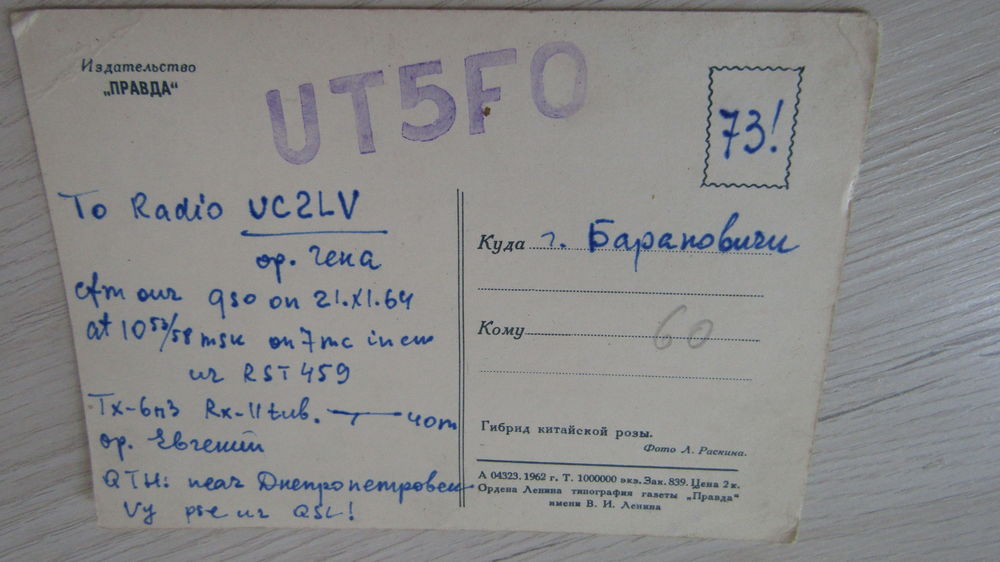 Издательство
„ПРАВДА“
UT5FO
73!
To Radio UC2LV
ор. Гена
cfm our qso on 21.XI.64
at 10 53/58 msk on 7 mc in cw
ur RST 459
Tx-6п3 Rx-11 tub. 40m
ор. Евгений
QTH: near Днепропетровск
Vy pse ur QSL!
Куда г. Барановичи
Кому
60
Гибрид китайской розы.
Фото Л. Раскина.
А 04323. 1962 г. Т. 1000000 экз. Зак. 839. Цена 2 к.
Ордена Ленина типография газеты „Правда“
имени В. И. Ленина